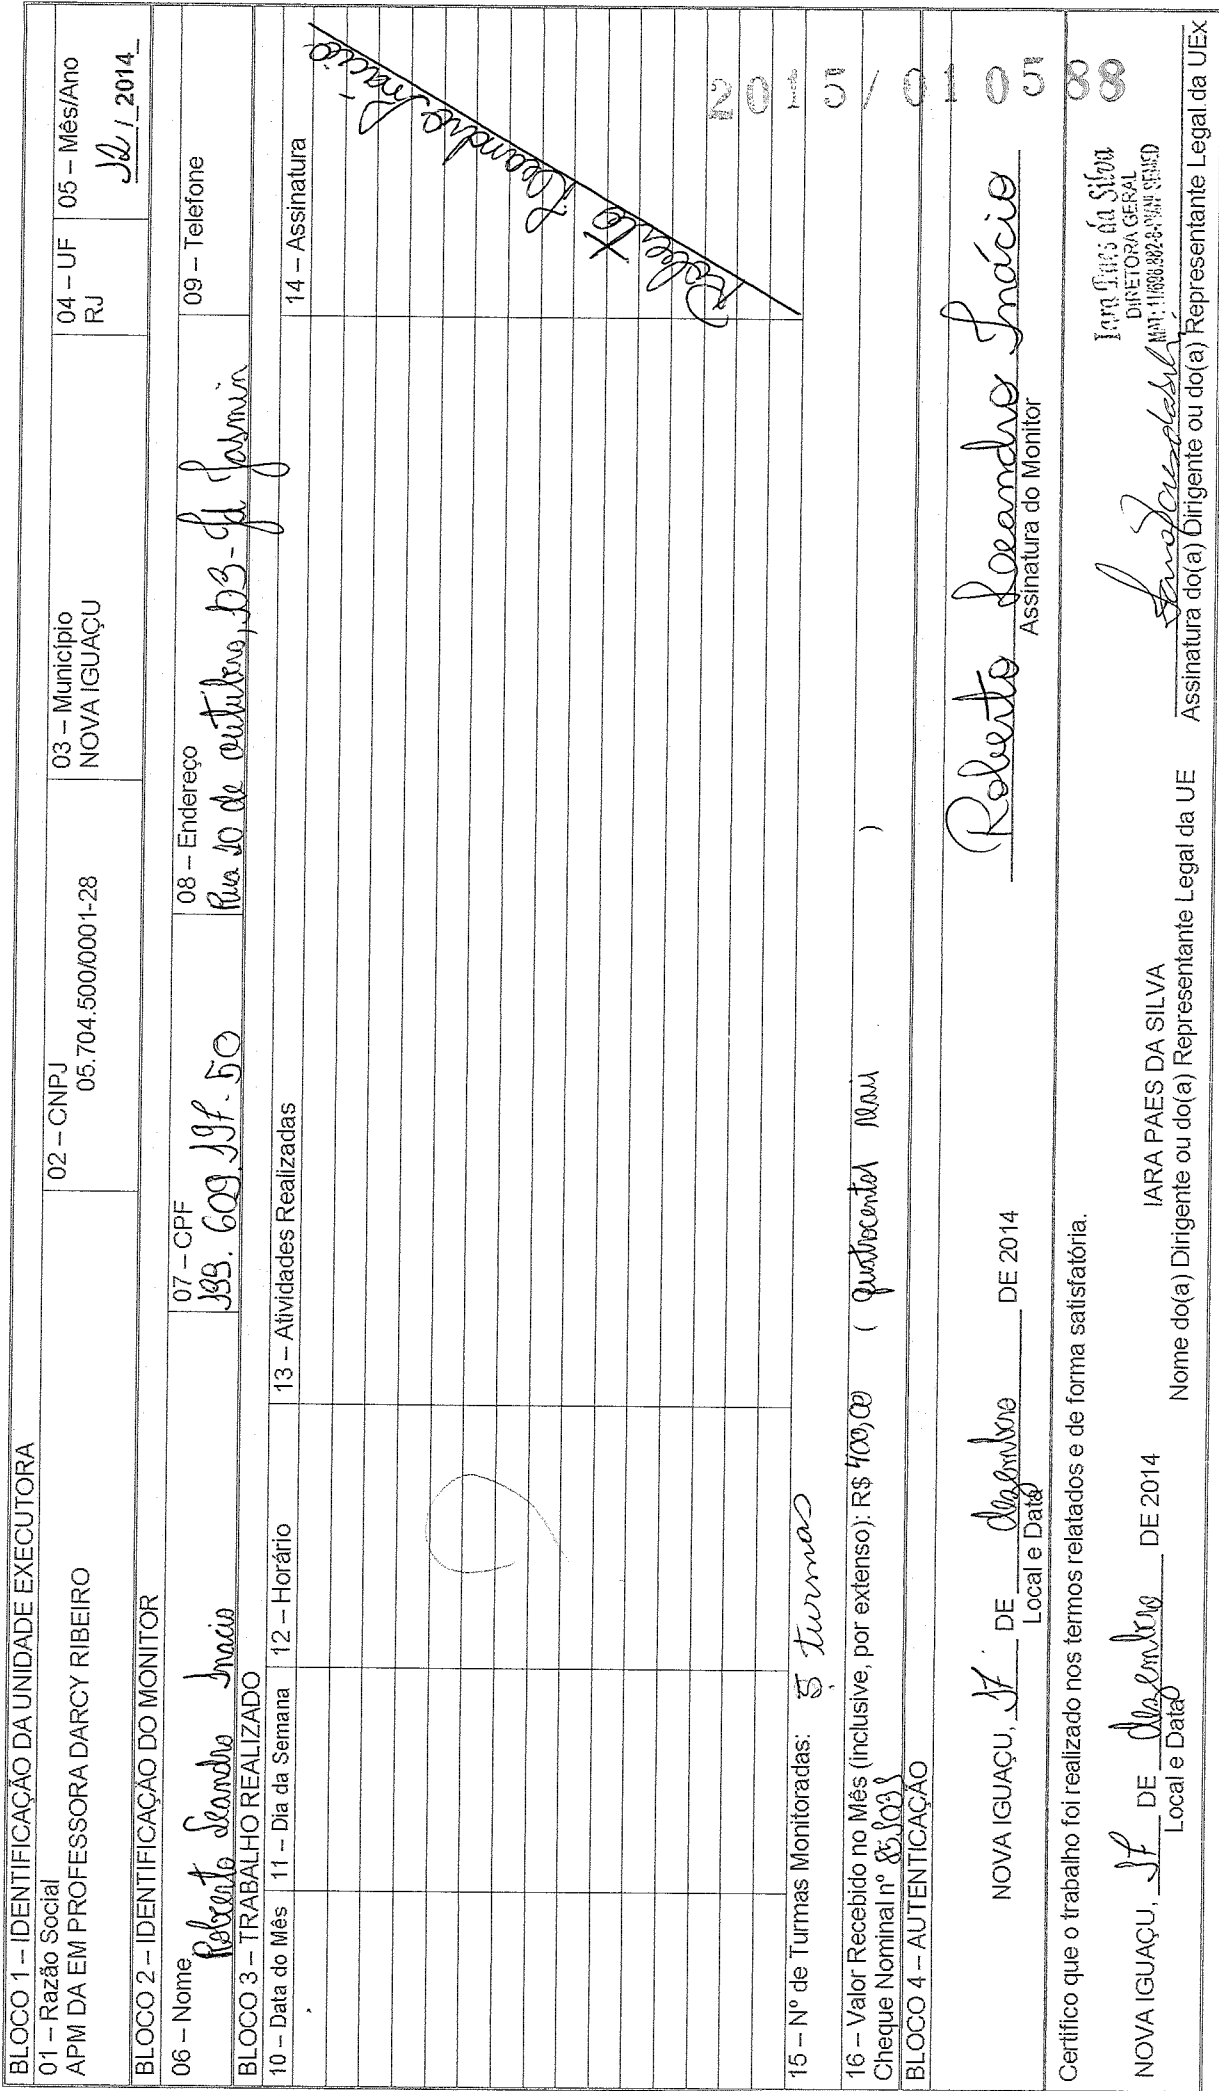 BLOCO 1 – IDENTIFICAÇÃO DA UNIDADE EXECUTORA
01 – Razão Social
APM DA EM PROFESSORA DARCY RIBEIRO
02 – CNPJ
05.704.500/0001-28
03 – Município
NOVA IGUAÇU
04 – UF
RJ
05 – Mês/Ano
12 / 2014
BLOCO 2 – IDENTIFICAÇÃO DO MONITOR
06 – Nome
Roberto Leandro Inacio
07 – CPF
199.609.197-50
08 – Endereço
Rua 10 de outubro, 103 - Jd Jasmin
09 – Telefone
BLOCO 3 – TRABALHO REALIZADO
10 – Data do Mês
11 – Dia da Semana
12 – Horário
13 – Atividades Realizadas
14 – Assinatura
Roberto Leandro Inácio
15 – Nº de Turmas Monitoradas: 5 turmas
16 – Valor Recebido no Mês (inclusive, por extenso): R$ 400,00 ( quatrocentos reais )
Cheque Nominal nº
BLOCO 4 – AUTENTICAÇÃO
NOVA IGUAÇU, 17 DE dezembro DE 2014
Local e Data
Roberto Leandro Inácio
Assinatura do Monitor
Certifico que o trabalho foi realizado nos termos relatados e de forma satisfatória.
NOVA IGUAÇU, 17 DE dezembro DE 2014
Local e Data
IARA PAES DA SILVA
Nome do(a) Dirigente ou do(a) Representante Legal da UE
Iara Paes da Silva
DIRETORA GERAL
Assinatura do(a) Dirigente ou do(a) Representante Legal da UEx
2015/010588